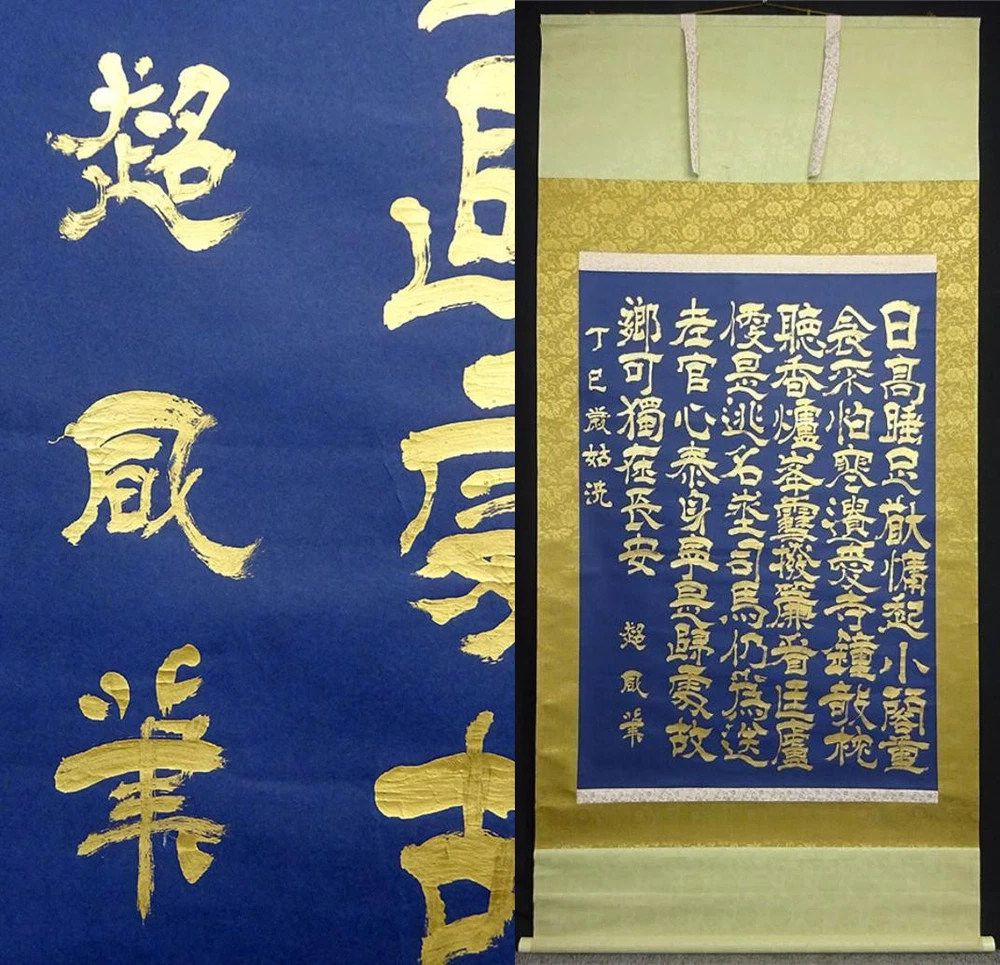 超風筆
日高睡足猶慵起小閣重
衾不怕寒遺愛寺鐘欹枕
聽香爐峯雪撥簾看匡廬
便是逃名地司馬仍為送
老官心泰身寧是歸處故
鄉可獨在長安
丁巳歲姑洗 超風筆